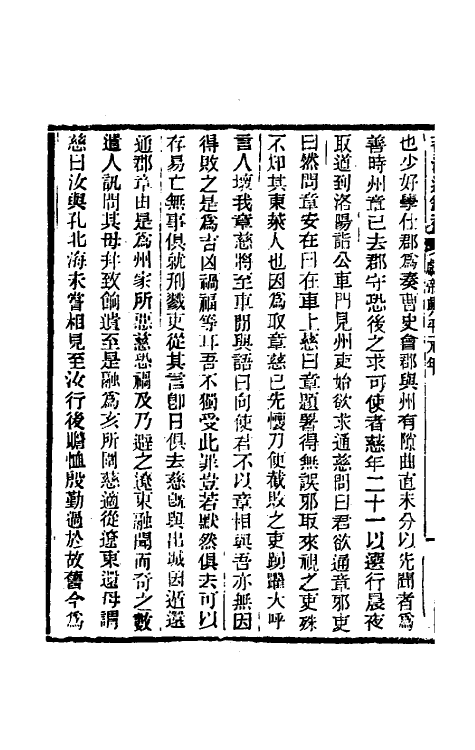 也少好學仕郡爲奏曹史會郡與州有隙曲直未分以先聞者爲
善時州章已去郡守恐後之求可使者慈年二十一以選行晨夜
取道到洛陽詣公車門見州吏始欲求通慈問曰君欲通章邪吏
曰然問章安在曰在車上慈曰章題署得無誤邪取來視之吏殊
不知其東萊人也因爲取章慈已先懷刀便截敗之吏踴躍大呼
言人壞我章慈將至車閒與語曰向使君不以章相與吾亦無因
得敗之是爲吉凶禍福等耳吾不獨受此罪豈若默然俱去可以
存易亡無事俱就刑戮吏從其言卽日俱去慈旣與出城因遁還
通郡章由是爲州家所惡慈恐禍及乃避之遼東融聞而奇之數
遣人訊問其母幷致餉遺至是融爲亥所圍慈適從遼東還母謂
慈曰汝與孔北海未嘗相見至汝行後贍恤殷勤過於故舊今爲